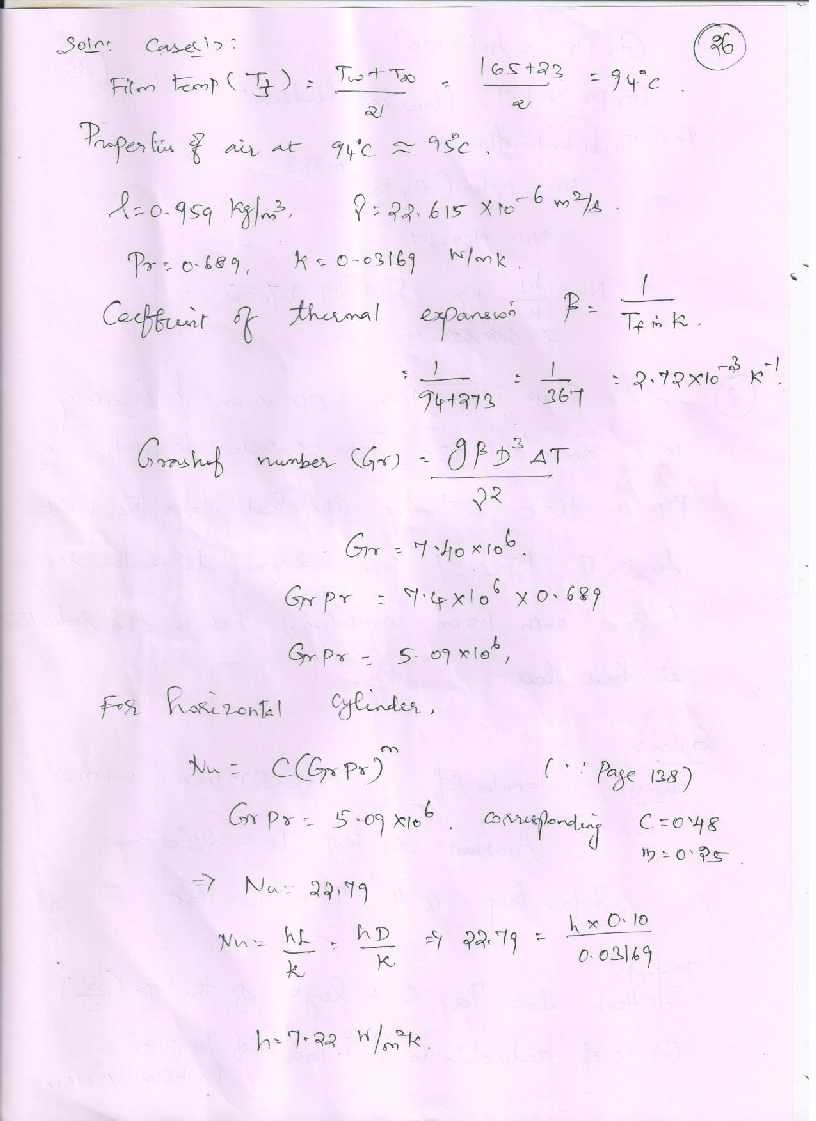 26
Soln: Case(i):
Film temp (Tf) = Tw + T∞ / 2 = 165+23 / 2 = 94°C.
Properties of air at 94°C ≈ 95°C.
ρ = 0.959 kg/m³. ν = 22.615 × 10⁻⁶ m²/s.
Pr = 0.689, K = 0.03169 W/mK.
Coefficient of thermal expansion β = 1 / Tf in K.
= 1 / 94+273 = 1 / 367 = 2.72×10⁻³ K⁻¹.
Grashof number (Gr) = gβD³ΔT / ν²
Gr = 7.40×10⁶.
Gr Pr = 7.4×10⁶ × 0.689
Gr Pr = 5.09×10⁶,
For horizontal cylinder,
Nu = C(Gr Pr)ᵐ (∵ Page 138)
Gr Pr = 5.09×10⁶. corresponding C = 0.48
m = 0.25.
⇒ Nu = 22.79
Nu = hL / k = hD / K ⇒ 22.79 = h × 0.10 / 0.03169
h = 7.22 W/m²K.